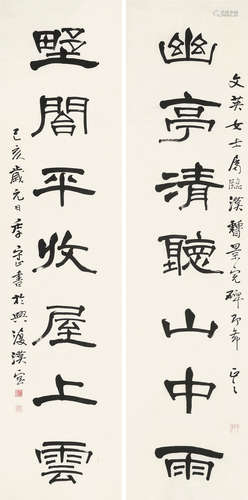 文英女士屬臨漢譙景完碑即希正之
幽亭清聽山中雨
野閣平收屋上雲
己亥歲元日季守正書於興漢室